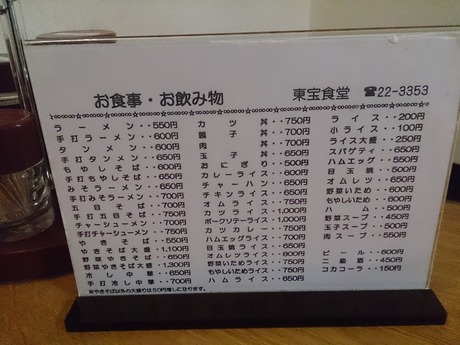 お食事・お飲み物
東宝食堂 ☎22-3353
ラーメン・・550円
手打ラーメン・・600円
タンメン・・600円
手打タンメン・・650円
もやしそば・・600円
手打もやしそば・・650円
みそラーメン・・650円
手打みそラーメン・・700円
五目そば・・700円
手打五目そば・・750円
チャーシューメン・・700円
手打チャーシューメン・・750円
やきそば・・550円
やきそば大盛・・1,100円
野菜やきそば・・650円
野菜やきそば大盛・・1,300円
冷し中華・・650円
手打冷し中華・・700円
※やきそば以外の大盛りは50円増しになります。
カツ丼・・750円
親子丼・・700円
肉丼・・700円
玉子丼・・650円
おにぎり・・
カレーライス・・600円
チャーハン・・650円
チキンライス・・650円
オムライス・・750円
カツライス・・1,000円
ポークソテーライス・・1,000円
カツカレー・・750円
ハムエッグライス・・700円
目玉焼ライス・・650円
オムレツライス・・800円
野菜いためライス・・750円
もやしいためライス・・750円
ハムライス・・650円
ライス・・200円
小ライス・・100円
ライス大盛・・250円
スパゲティ・・650円
ハムエッグ・・550円
目玉焼・・500円
オムレツ・・650円
野菜いため・・600円
もやしいため・・600円
ハム・・500円
野菜スープ・・450円
玉子スープ・・500円
肉スープ・・550円
ビール・・600円
二級酒・・450円
コカコーラ・・150円